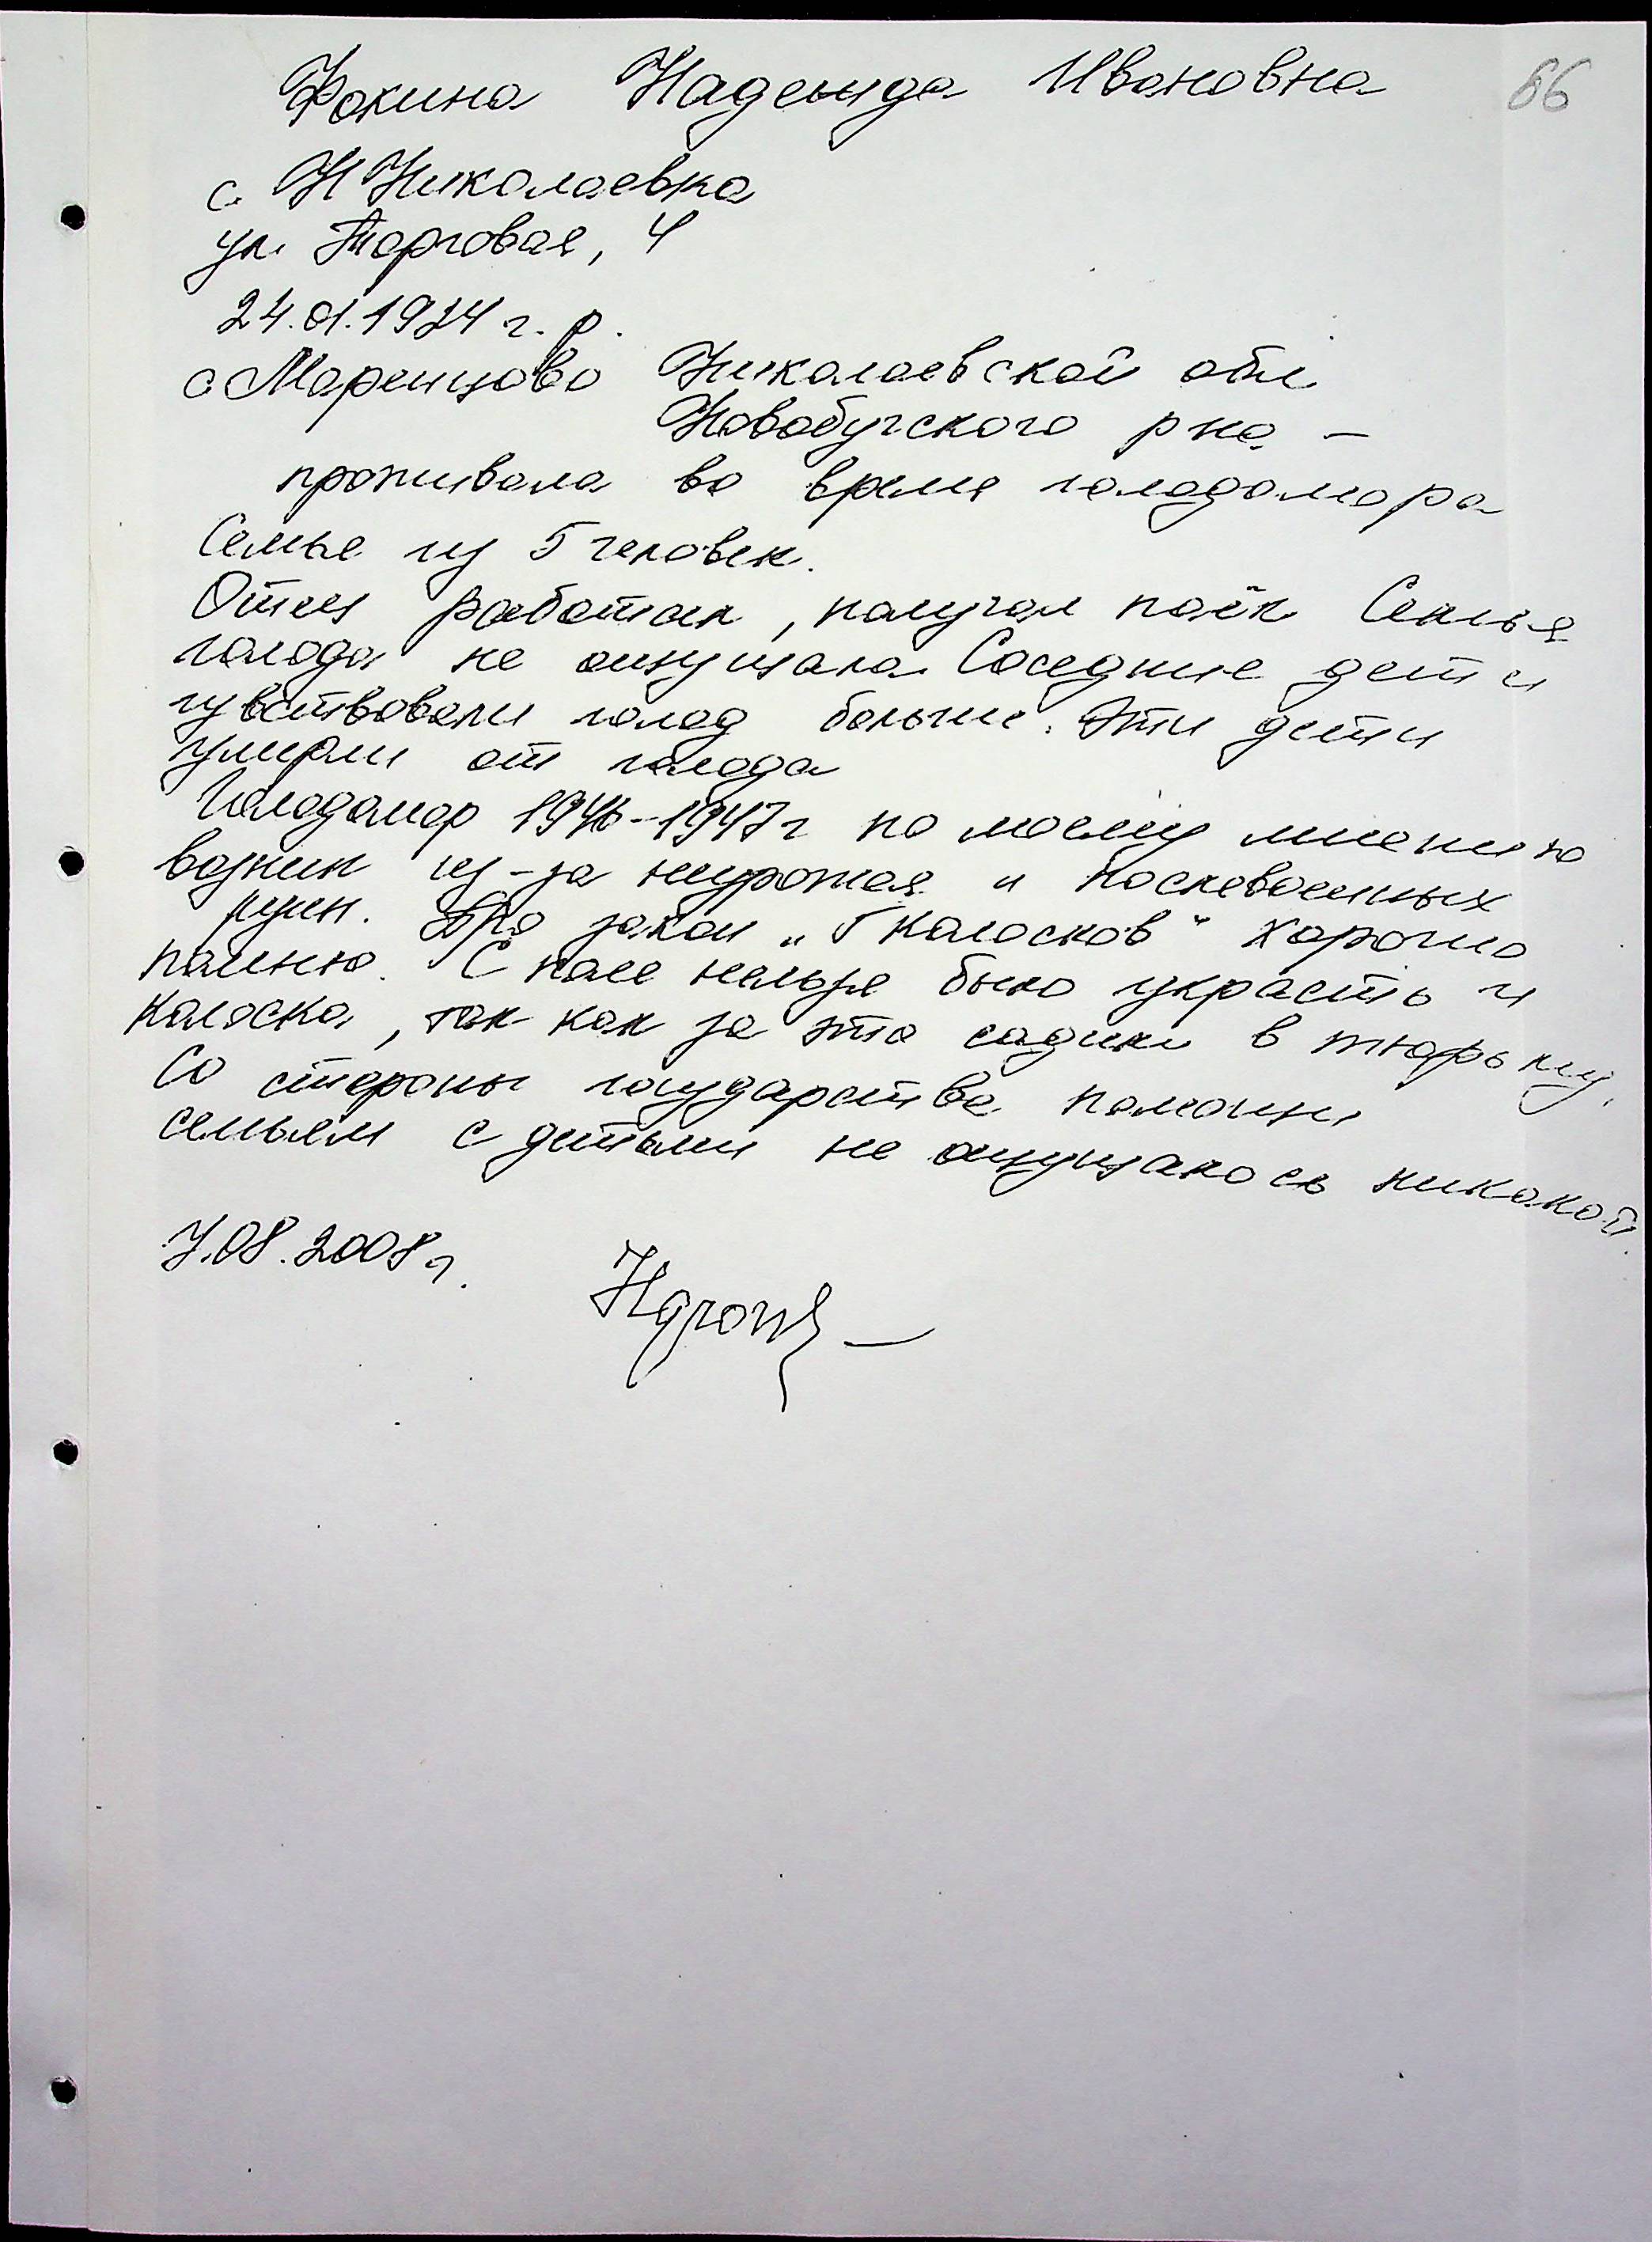 Фокина Надежда Ивановна 66
с. Н Николаевка
ул. Торговая, 4
24.01.1924 г. р.
с Николаевской обл
Новобугского р на -
проживала во время голодомора
Семье из 5 человек.
Отец работал, получал паёк Семья
голода не ощущала Соседние дети
чувствовали голод больше. Эти дети
умерли от голода
Голодомор 1946-1947 г по моему мнению
возник из-за неурожая и послевоенных
руин. Про закон „5 колосков" хорошо
помню. С поле нельзя было украсть и
колоска, так как за это садили в тюрьму.
Со стороны государства помощи
семьям с детьми не ощущалось никакой.
7.08.2008 г.